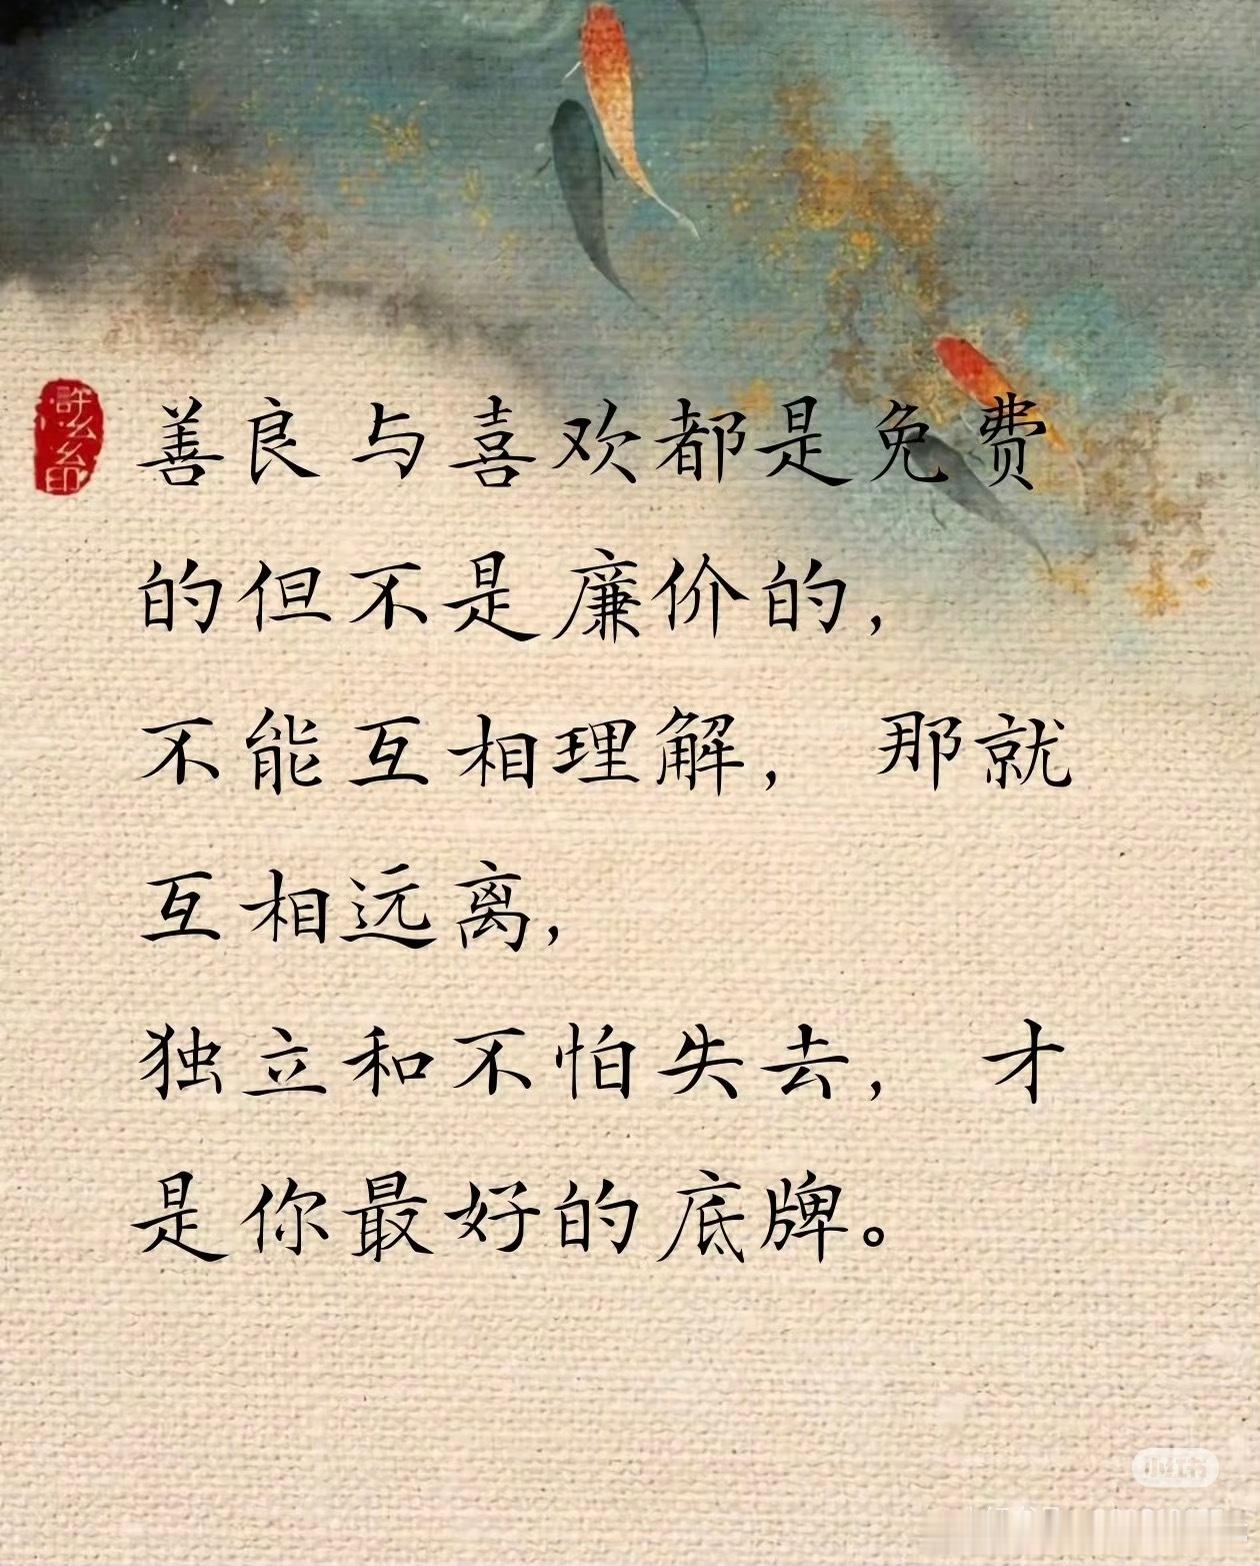 善良与喜欢都是免费
的但不是廉价的，
不能互相理解，那就
互相远离，
独立和不怕失去，才
是你最好的底牌。
小红书